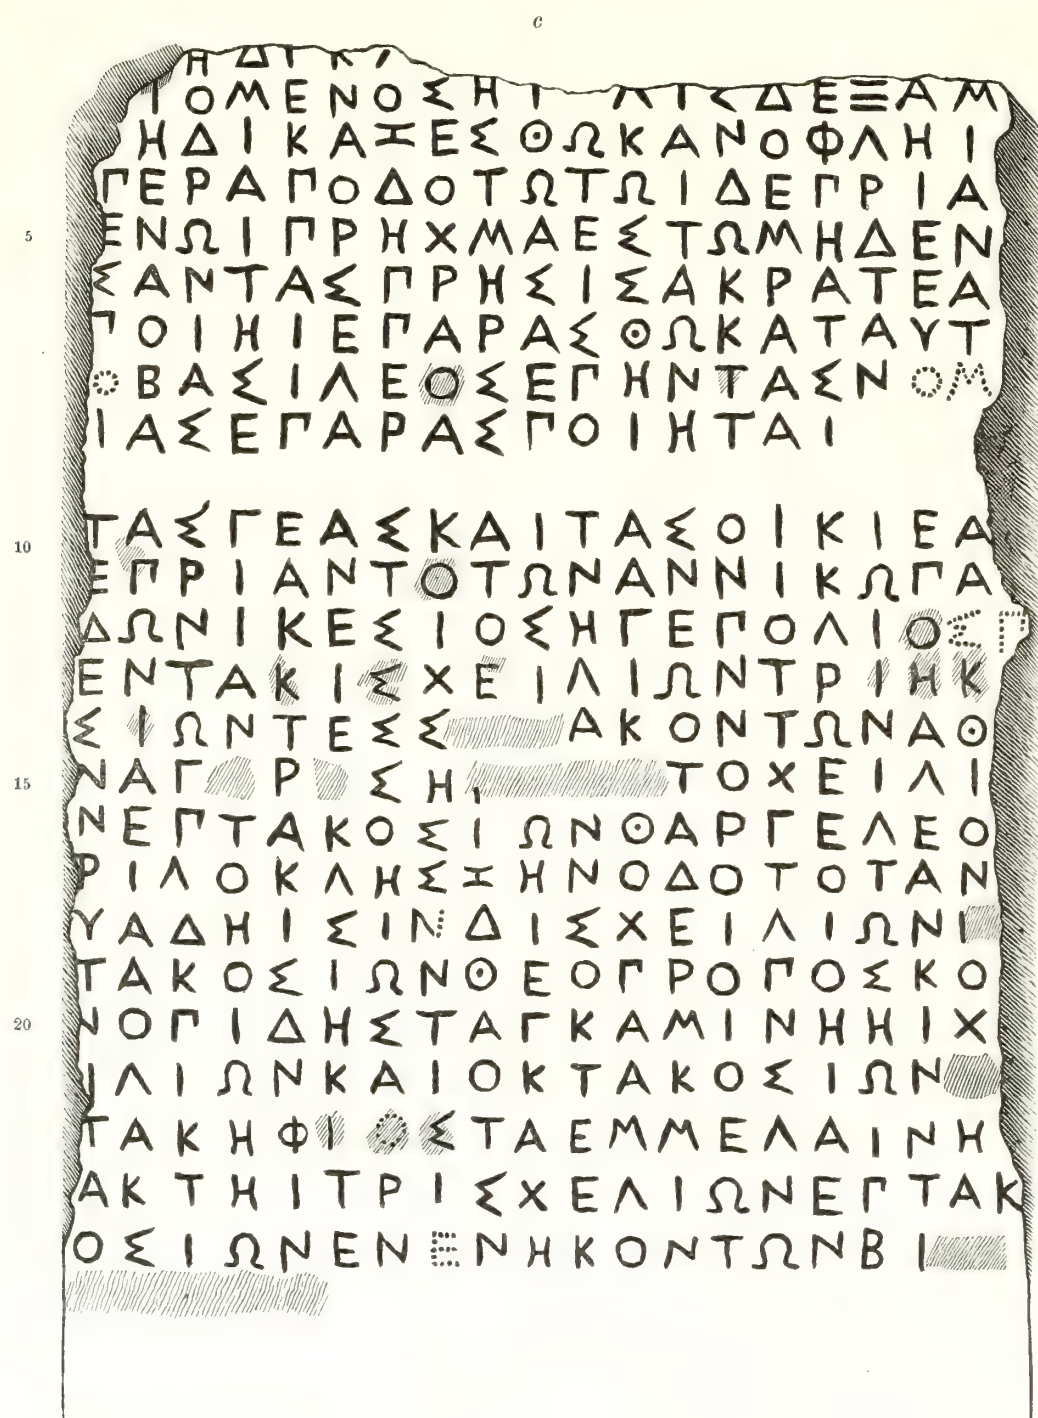 c
ΗΔΙΚ
ΤΟΜΕΝΟΣΗΤ ΛΙΣΔΕΞΑΜ
ΗΔΙΚΑΞΕΣΘΩΚΑΝΟΦΛΗΙ
ΠΕΡΑΠΟΔΟΤΩΤΩΙΔΕΠΡΙΑ
5 ΕΝΩΙΠΡΗΧΜΑΕΣΤΩΜΗΔΕΝ
ΣΑΝΤΑΣΠΡΗΣΙΣΑΚΡΑΤΕΑ
ΠΟΙΗΙΕΠΑΡΑΣΘΩΚΑΤΑΥΤ
ΟΒΑΣΙΛΕΟΣΕΠΗΝΤΑΣΝΟΜ
ΙΑΣΕΠΑΡΑΣΠΟΙΗΤΑΙ
10 ΤΑΣΓΕΑΣΚΑΙΤΑΣΟΙΚΙΕΑ
ΕΠΡΙΑΝΤΟΤΩΝΑΝΝΙΚΩΠΑ
ΔΩΝΙΚΕΣΙΟΣΗΓΕΠΟΛΙΟΣΠ
ΕΝΤΑΚΙΣΧΕΙΛΙΩΝΤΡΙΗΚ
ΣΙΩΝΤΕΣΣ ΑΚΟΝΤΩΝΑΘ
15 ΝΑΓ Ρ ΣΗ ΤΟΧΕΙΛΙ
ΝΕΠΤΑΚΟΣΙΩΝΘΑΡΓΕΛΕΟ
ΡΙΛΟΚΛΗΣΞΗΝΟΔΟΤΟΤΑΝ
ΥΑΔΗΙΣΙΝΔΙΣΧΕΙΛΙΩΝΙ
ΤΑΚΟΣΙΩΝΘΕΟΓΡΟΠΟΣΚΟ
20 ΝΟΠΙΔΗΣΤΑΓΚΑΜΙΝΗΗΙΧ
ΙΛΙΩΝΚΑΙΟΚΤΑΚΟΣΙΩΝ
ΤΑΚΗΦΙΟΣΤΑΕΜΜΕΛΑΙΝΗ
ΑΚΤΗΙΤΡΙΣΧΕΛΙΩΝΕΠΤΑΚ
ΟΣΙΩΝΕΝΕΝΗΚΟΝΤΩΝΒΙ